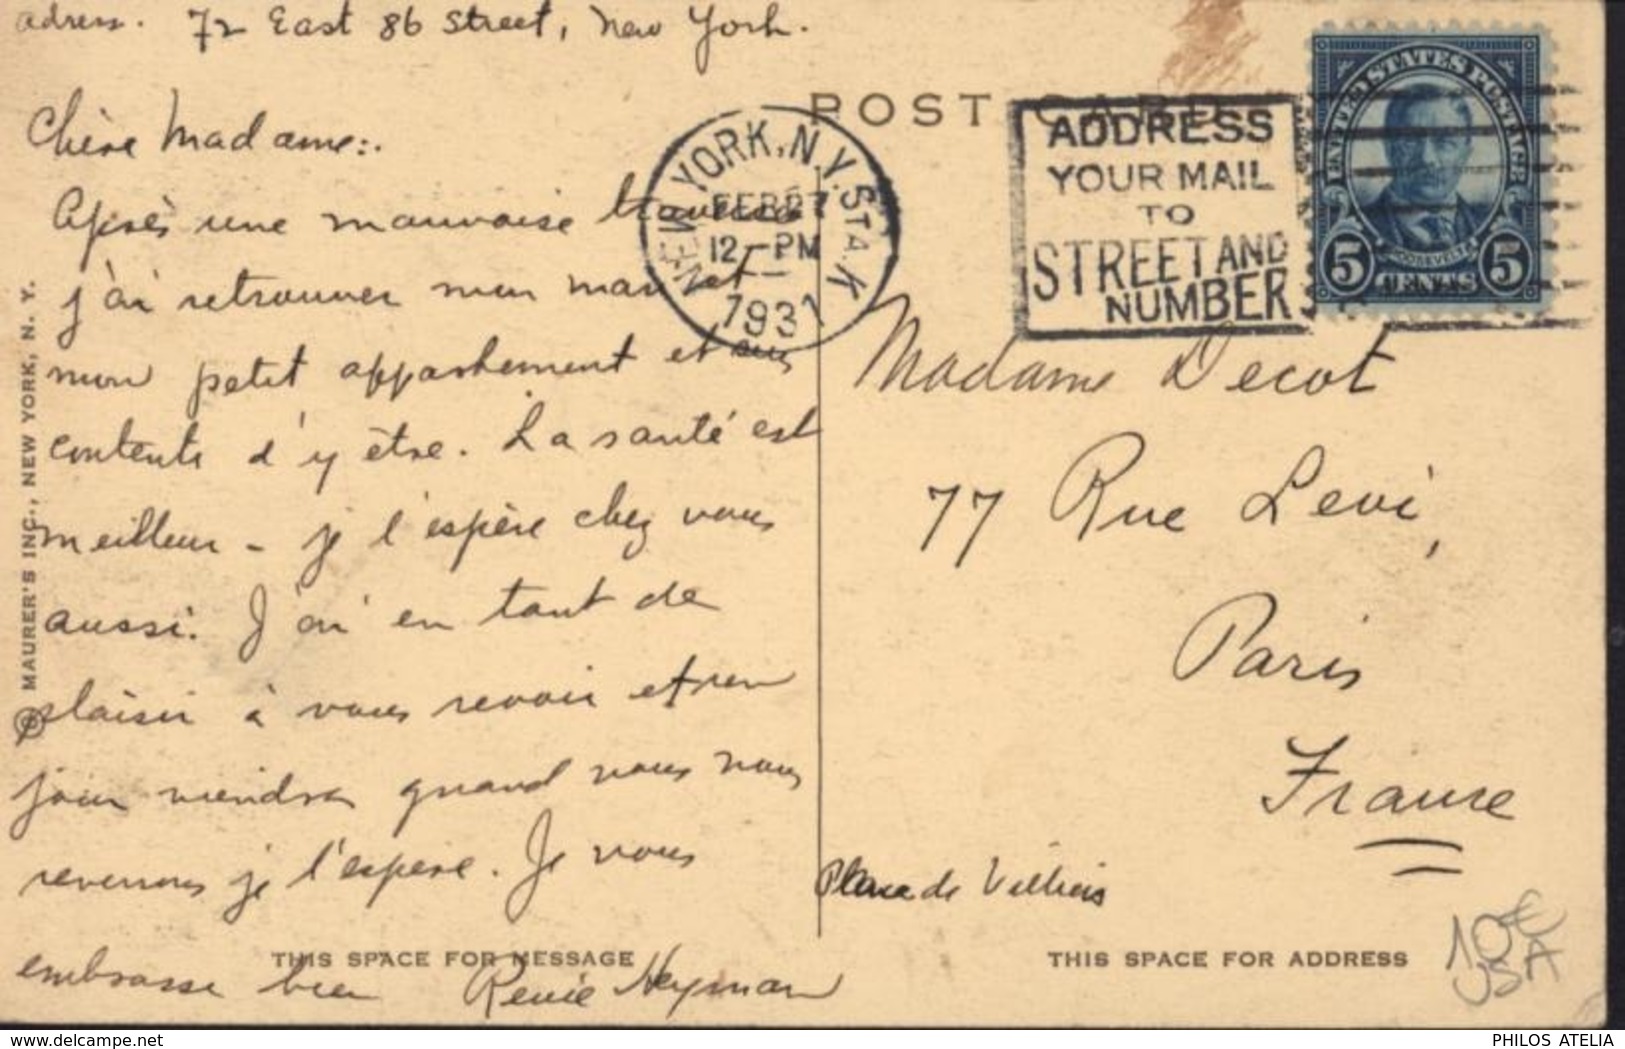 adress. 72 East 86 Street, New York.
Chère Madame:.
Après une mauvaise traversée
j'ai retrouver mon mari et
mon petit appartement et suis
contente d'y être. La santé est
meilleur - je l'espère chez vous
aussi. J'ai en tant de
plaisir à vous revoir et
jour viendra quand nous nous
reverrons je l'espère. Je vous
embrasse bien Renée Heyman
THIS SPACE FOR MESSAGE
© MAURER'S INC., NEW YORK, N. Y.
POST CARD
NEW YORK, N.Y. STA. K
FEB 27
12-PM
1931
ADDRESS
YOUR MAIL
TO
STREET AND
NUMBER
UNITED STATES POSTAGE
ROOSEVELT
5 CENTS 5
Madame Decot
77 Rue Levi,
Paris
France
Place de Villiers
THIS SPACE FOR ADDRESS
10€
USA
www.delcampe.net
PHILOS ATELIA